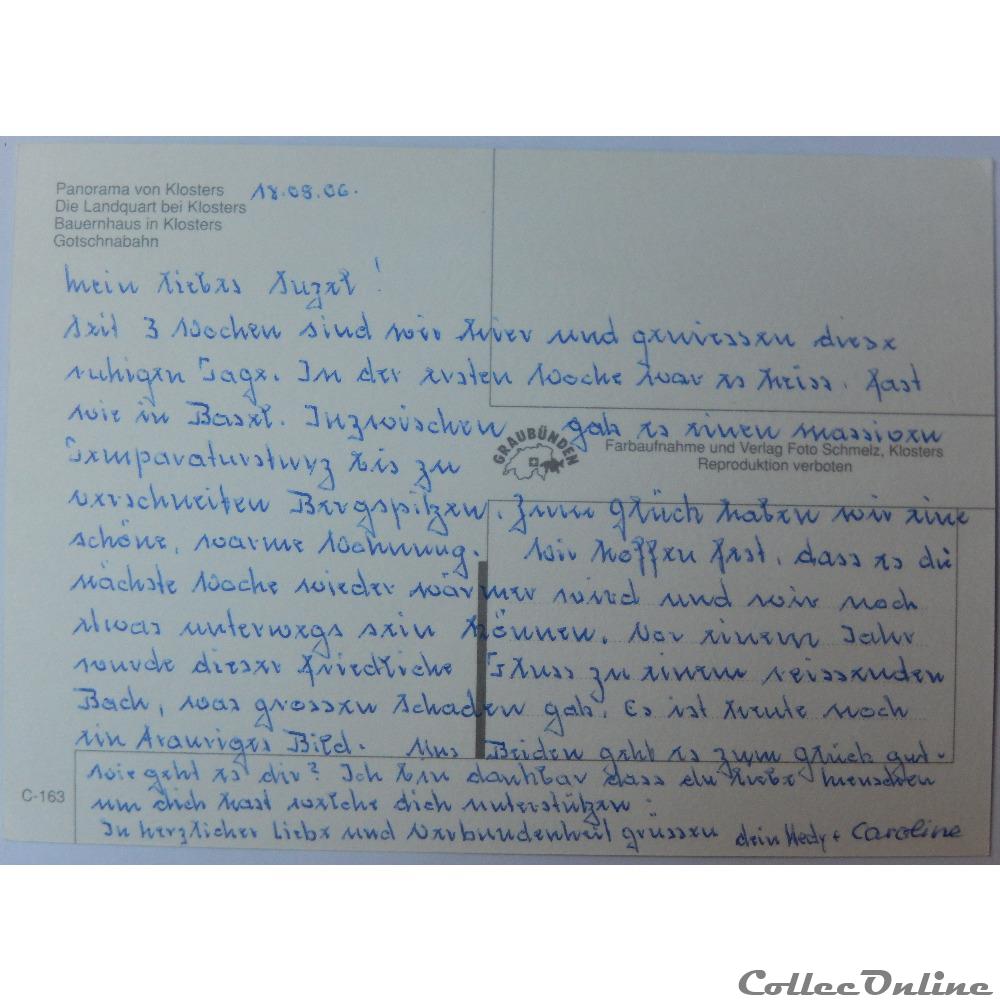 Panorama von Klosters 18.08.06.
Die Landquart bei Klosters
Bauernhaus in Klosters
Gotschnabahn
Mein liebes Suzel!
Seit 3 Wochen sind wir hier und geniessen diese
ruhigen Tage. In der ersten Woche war es heiss, fast
wie in Basel. Inzwischen gab es einen massiven
GRAUBÜNDEN
Farbaufnahme und Verlag Foto Schmelz, Klosters
Reproduktion verboten
Temparatursturz bis zu
verschneiten Bergspitzen. Zum Glück haben wir eine
schöne, warme Wohnung. Wir hoffen fest, dass es die
nächste Woche wieder wärmer wird und wir noch
etwas unterwegs sein können. Vor einem Jahr
wurde dieser friedliche Fluss zu einem reissenden
Bach, was grossen Schaden gab. Es ist heute noch
ein trauriges Bild. Uns Beiden geht es zum Glück gut.
Wie geht es dir? Ich bin dankbar dass du liebe Menschen
um dich hast welche dich unterstützen.
In herzlicher Liebe und Verbundenheit grüssen dein Hedy + Caroline
C-163
CollecOnline